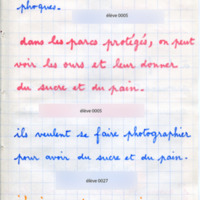 phoques.
élève 0005
dans les parcs protégés, on peut
voir les ours et leur donner
du sucre et du pain.
élève 0005
ils veulent se faire photographier
pour avoir du sucre et du pain.
élève 0027